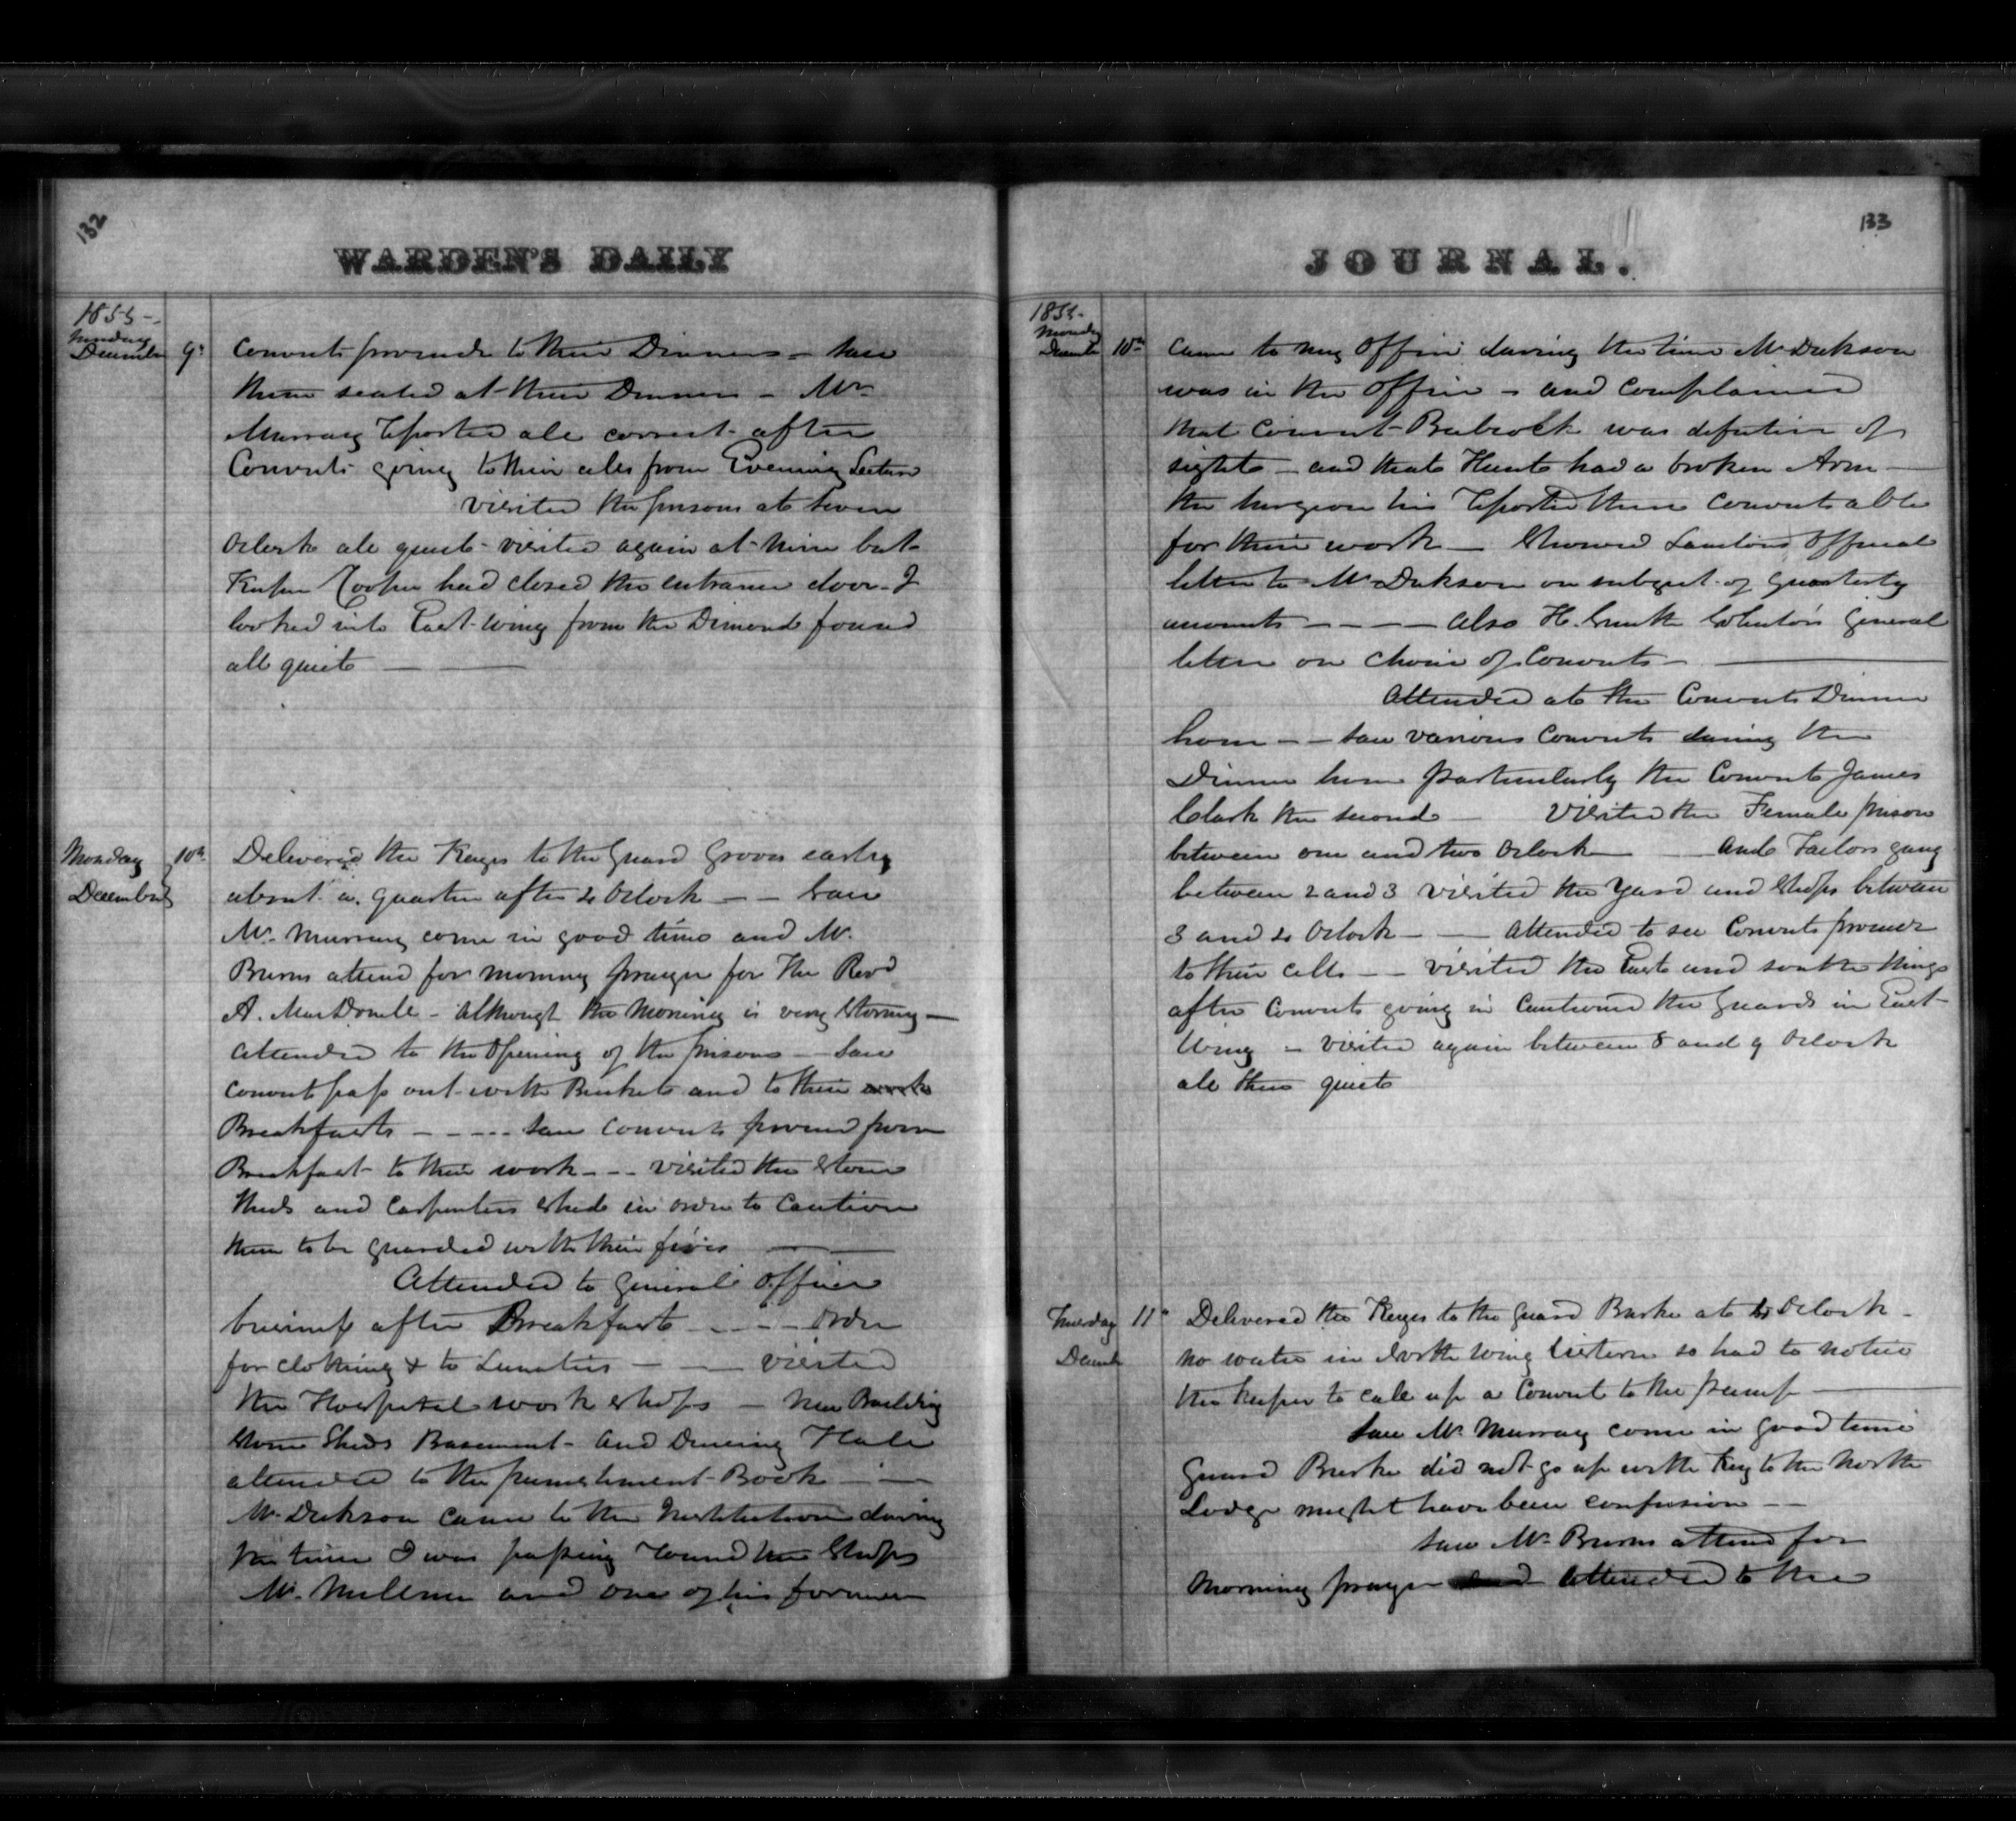 132
WARDEN'S DAILY
1855-
Sunday
December 9th
Convicts proceed to their Dinners - saw
them seated at their Dinners - Mr
Murray reported all correct after
Convicts going to their cells from Evening Lecture
visited the prisons at seven
Oclock all quiet - visited again at nine but
Keeper Cooper had closed the entrance door - I
looked into East Wing from the Dimond found
all quiet
Monday 10th
December
Delivered the Keys to the Guard Groves early
about a quarter after 4 Oclock - - Saw
Mr Murray come in good time and Mr
Burns attend for morning prayer for The Revd
A. MacDonell - although the morning is very stormy -
attended to the opening of the prisons - Saw
convicts pass out with Buckets and to their work
Breakfasts - - - - saw convicts proceed from
Breakfast to their work - - - visited the Stone
Sheds and Carpenters Shed in order to Caution
them to be guarded with their fires
Attended to General Office
business after Breakfast - - - - order
for clothing & to Lunatics - - visited
the Hospital work shops - New Building
Stone Sheds Basement - and Dineing Hall
attended to the punishment - Book
Mr Dickson came to the Institution during
the time I was passing round the Shops
Mr. Millner and one of his foremen
133
JOURNAL.
1855-
Monday
December 10th
came to my office during the time Mr Dickson
was in the office - and complained
that Convict Babcock was defective of
sight - and that Hunt had a broken Arm -
the surgeon has reported these convicts able
for their work - Showed official
letter to Mr Dickson on subject of Quarterly
accounts - - - - also H. Smith Solicitor General
letter on choice of Convicts -
Attended at the Convicts Dinner
hour - - saw various Convicts during the
Dinner hour particularly the Convict James
Clark the second - Visited the Female prison
between one and two Oclock - and Tailors gang
between 2 and 3 visited the Yard and Shops between
3 and 4 Oclock - - attended to see Convicts proceed
to their cells - - visited the East and South Wings
after Convicts going in Cautioned the Guards in East
Wing - visited again between 8 and 9 Oclock
all then quiet
Tuesday 11th
December
Delivered the Keys to the Guard Burke at 4 Oclock -
no water in North Wing Cistern so had to notice
the keeper to call up a Convict to the pump
saw Mr Murray come in good time
Guard Burke did not go up with Key to the North
Lodge might have been confusion - -
saw Mr Burns attend for
Morning prayer and attended to the